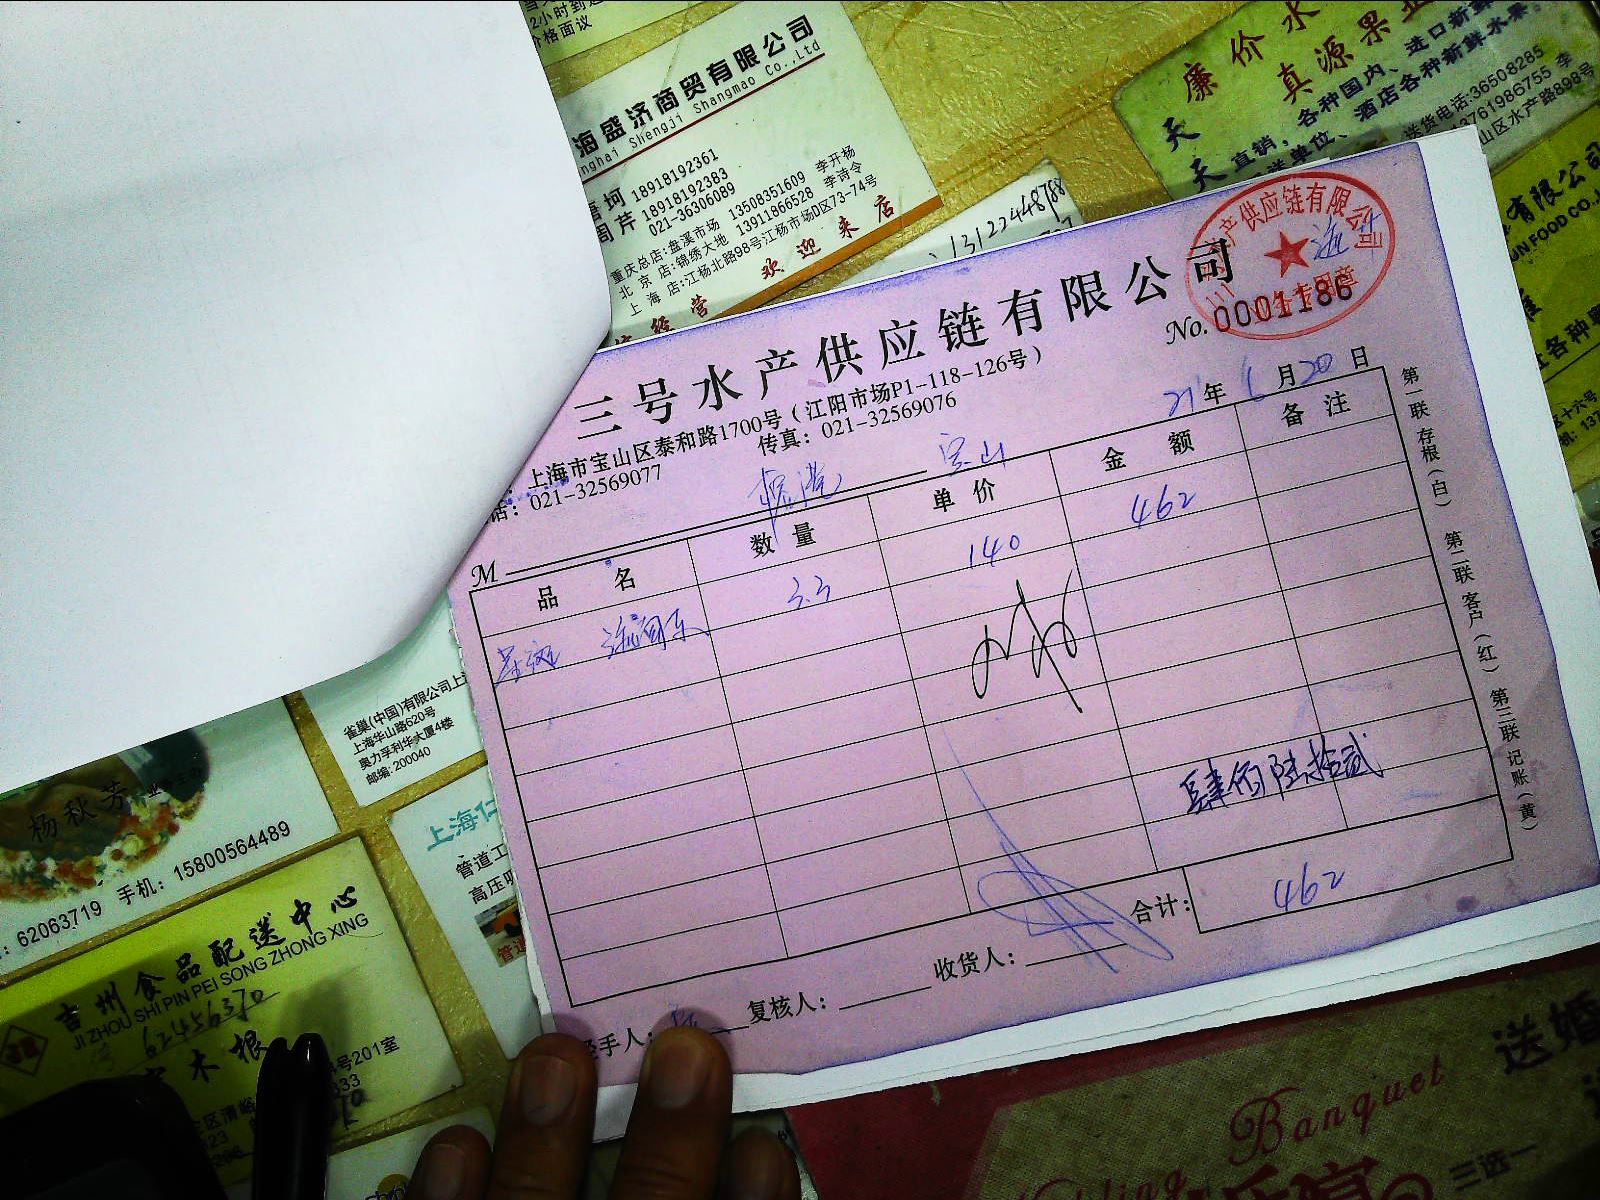 2小时到达
价格面议
海盛济商贸有限公司
nghai Shengji Shangmao Co.,Ltd
唐坷 18918192361
周芹 18918192383
021-36306089
重庆总店:盘溪市场 13508351609 李开杨
北京店:锦绣大地 13911866528 李诗令
上海店:江杨北路98号江杨市场D区73-74号
欢迎来店
经营
13122448788
廉价水
真源果业
天天
直销,各种国内、进口新鲜
单位、酒店各种新鲜水果
送货电话:36508285
13761986755 李
山区水产路898号
有限公司
UN FOOD CO.,
各种
三号水产供应链有限公司
产供应链有限公司
No. 0001186
上海市宝山区泰和路1700号(江阳市场P1-118-126号)
话: 021-32569077 传真: 021-32569076
21年 6月20日
M 宝山
品名 数量 单价 金额 备注
3.3 140 462
肆佰陆拾贰
合计: 462
收货人:
复核人:
经手人:
第一联 存根(白) 第二联 客户(红) 第三联 记账(黄)
雀巢(中国)有限公司上海
上海华山路620号
奥力孚利华大厦4楼
邮编: 200040
杨秋芳
62063719 手机: 15800564489
上海仁
管道工
高压
管道
吉州食品配送中心
JI ZHOU SHI PIN PEI SONG ZHONG XING
62456370
木根
号201室
333
送婚
Banquet
三选一